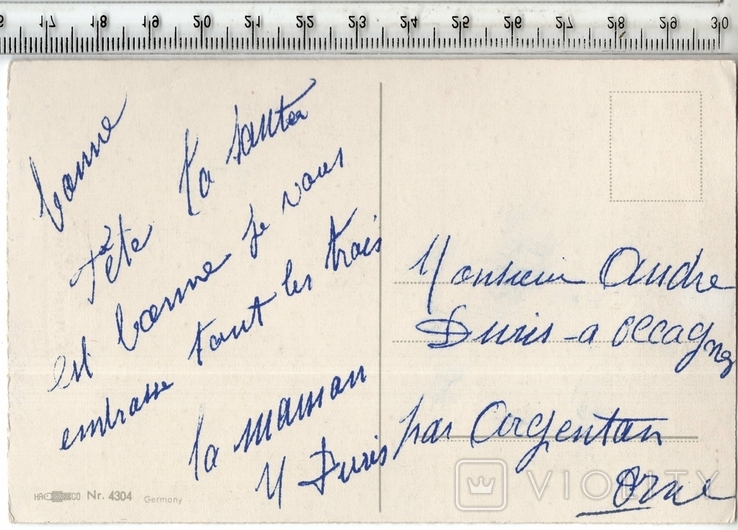 17 18 19 20 21 22 23 24 25 26 27 28 29 30
bonne
Fête la santée
est bonne je vous
embrasse tout les trois
la maman
Y Duris
Monsieur Andre
Duris a Occagnes
par Argentan
Orne
Nr. 4304 Germany
VIOLITY